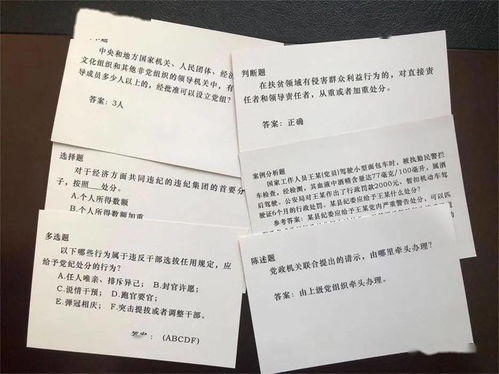 中央和地方国家机关、人民团体、经济
文化组织和其他非党组织的领导机关中，有
导成员多少人以上的，经批准可以设立党组？
答案：3人
判断题
在扶贫领域有侵害群众利益行为的，对直接责
任者和领导责任者，从重或者加重处分。
答案：正确
选择题
对于经济方面共同违纪的违纪集团的首要分
子，按照__处分。
A.个人所得数额
B.个人所得数额加重
案例分析题
国家工作人员王某(党员)驾驶小型面包车时，被执勤民警拦
车检查，经检测，其血液中酒精含量达77毫克/100毫升，属酒
后驾驶。公安局对王某作出了行政罚款2000元，暂扣机动车驾
驶证6个月的行政处罚。某县纪委应给予王某什么处分？
参考答案：某县纪委应给予王某党内严重警告处分，可以匹
多选题
以下哪些行为属于违反干部选拔任用规定，应
给予党纪处分的行为？
A.任人唯亲、排斥异己； B.封官许愿；
C.说情干预； D.跑官要官；
E.弹冠相庆； F.突击提拔或者调整干部。
答案： (ABCDF)
陈述题
党政机关联合提出的请示，由哪里牵头办理？
答案：由上级党组织牵头办理。